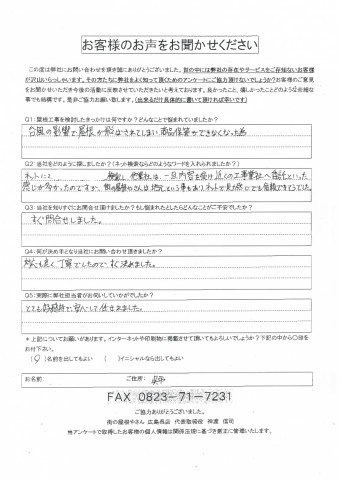 お客様のお声をお聞かせください
この度は弊社にお問い合わせを頂き誠にありがとうございました。世の中には弊社の存在やサービスをご存知ないお客様
が沢山いらっしゃいます。その方たちに弊社をよく知って頂くためのアンケートにご協力頂けないでしょうか？お客様のご意見
をお聞かせいただき今後の活動に反映させていただきたいと考えております。良かったこと、嬉しかったことどのような些細な
事でも結構です。是非ご協力お願い致します。（出来るだけ具体的に書いて頂ければ幸いです）
Q1：屋根工事を検討したきっかけは何ですか？どんなことで悩まれていましたか？
台風の影響で屋根が飛ばされてしまい商品保管ができなくなった為
Q2：当社をどのように探しましたか？（ネット検索ならどのようなワードを入れられましたか？）
ネットにて 検索し 他業社は、一旦内容を受け近くの工事業社へ委託といった
感じが多かったのですが、街の屋根やさんは
Q3：当社を知りすぐにお問合せ頂けましたか？もし悩まれたとしたらどんなことがご不安でしたか？
すぐ問合せしました。
Q4：何が決め手となり当社にお問い合わせ頂きましたか？
も良く丁寧でしたので、すぐ決めました。
Q5：実際に弊社担当者がお伺いしていかがでしたか？
とても 安心して任せれました。
＊上記についてお願いがあります。インターネットや印刷物に掲載させて頂いてもよろしいでしょうか？下記の中から○印を
お付下さい。
（○）名前を出してもよい （ ）イニシャルなら出してもよい
お名前： ご住所：
FAX 0823-71-7231
ご協力ありがとうございました。
街の屋根やさん 広島呉店 代表取締役 神渡 信司
尚アンケートで取得したお客様の個人情報は関係法規に基づき厳正に管理いたします。